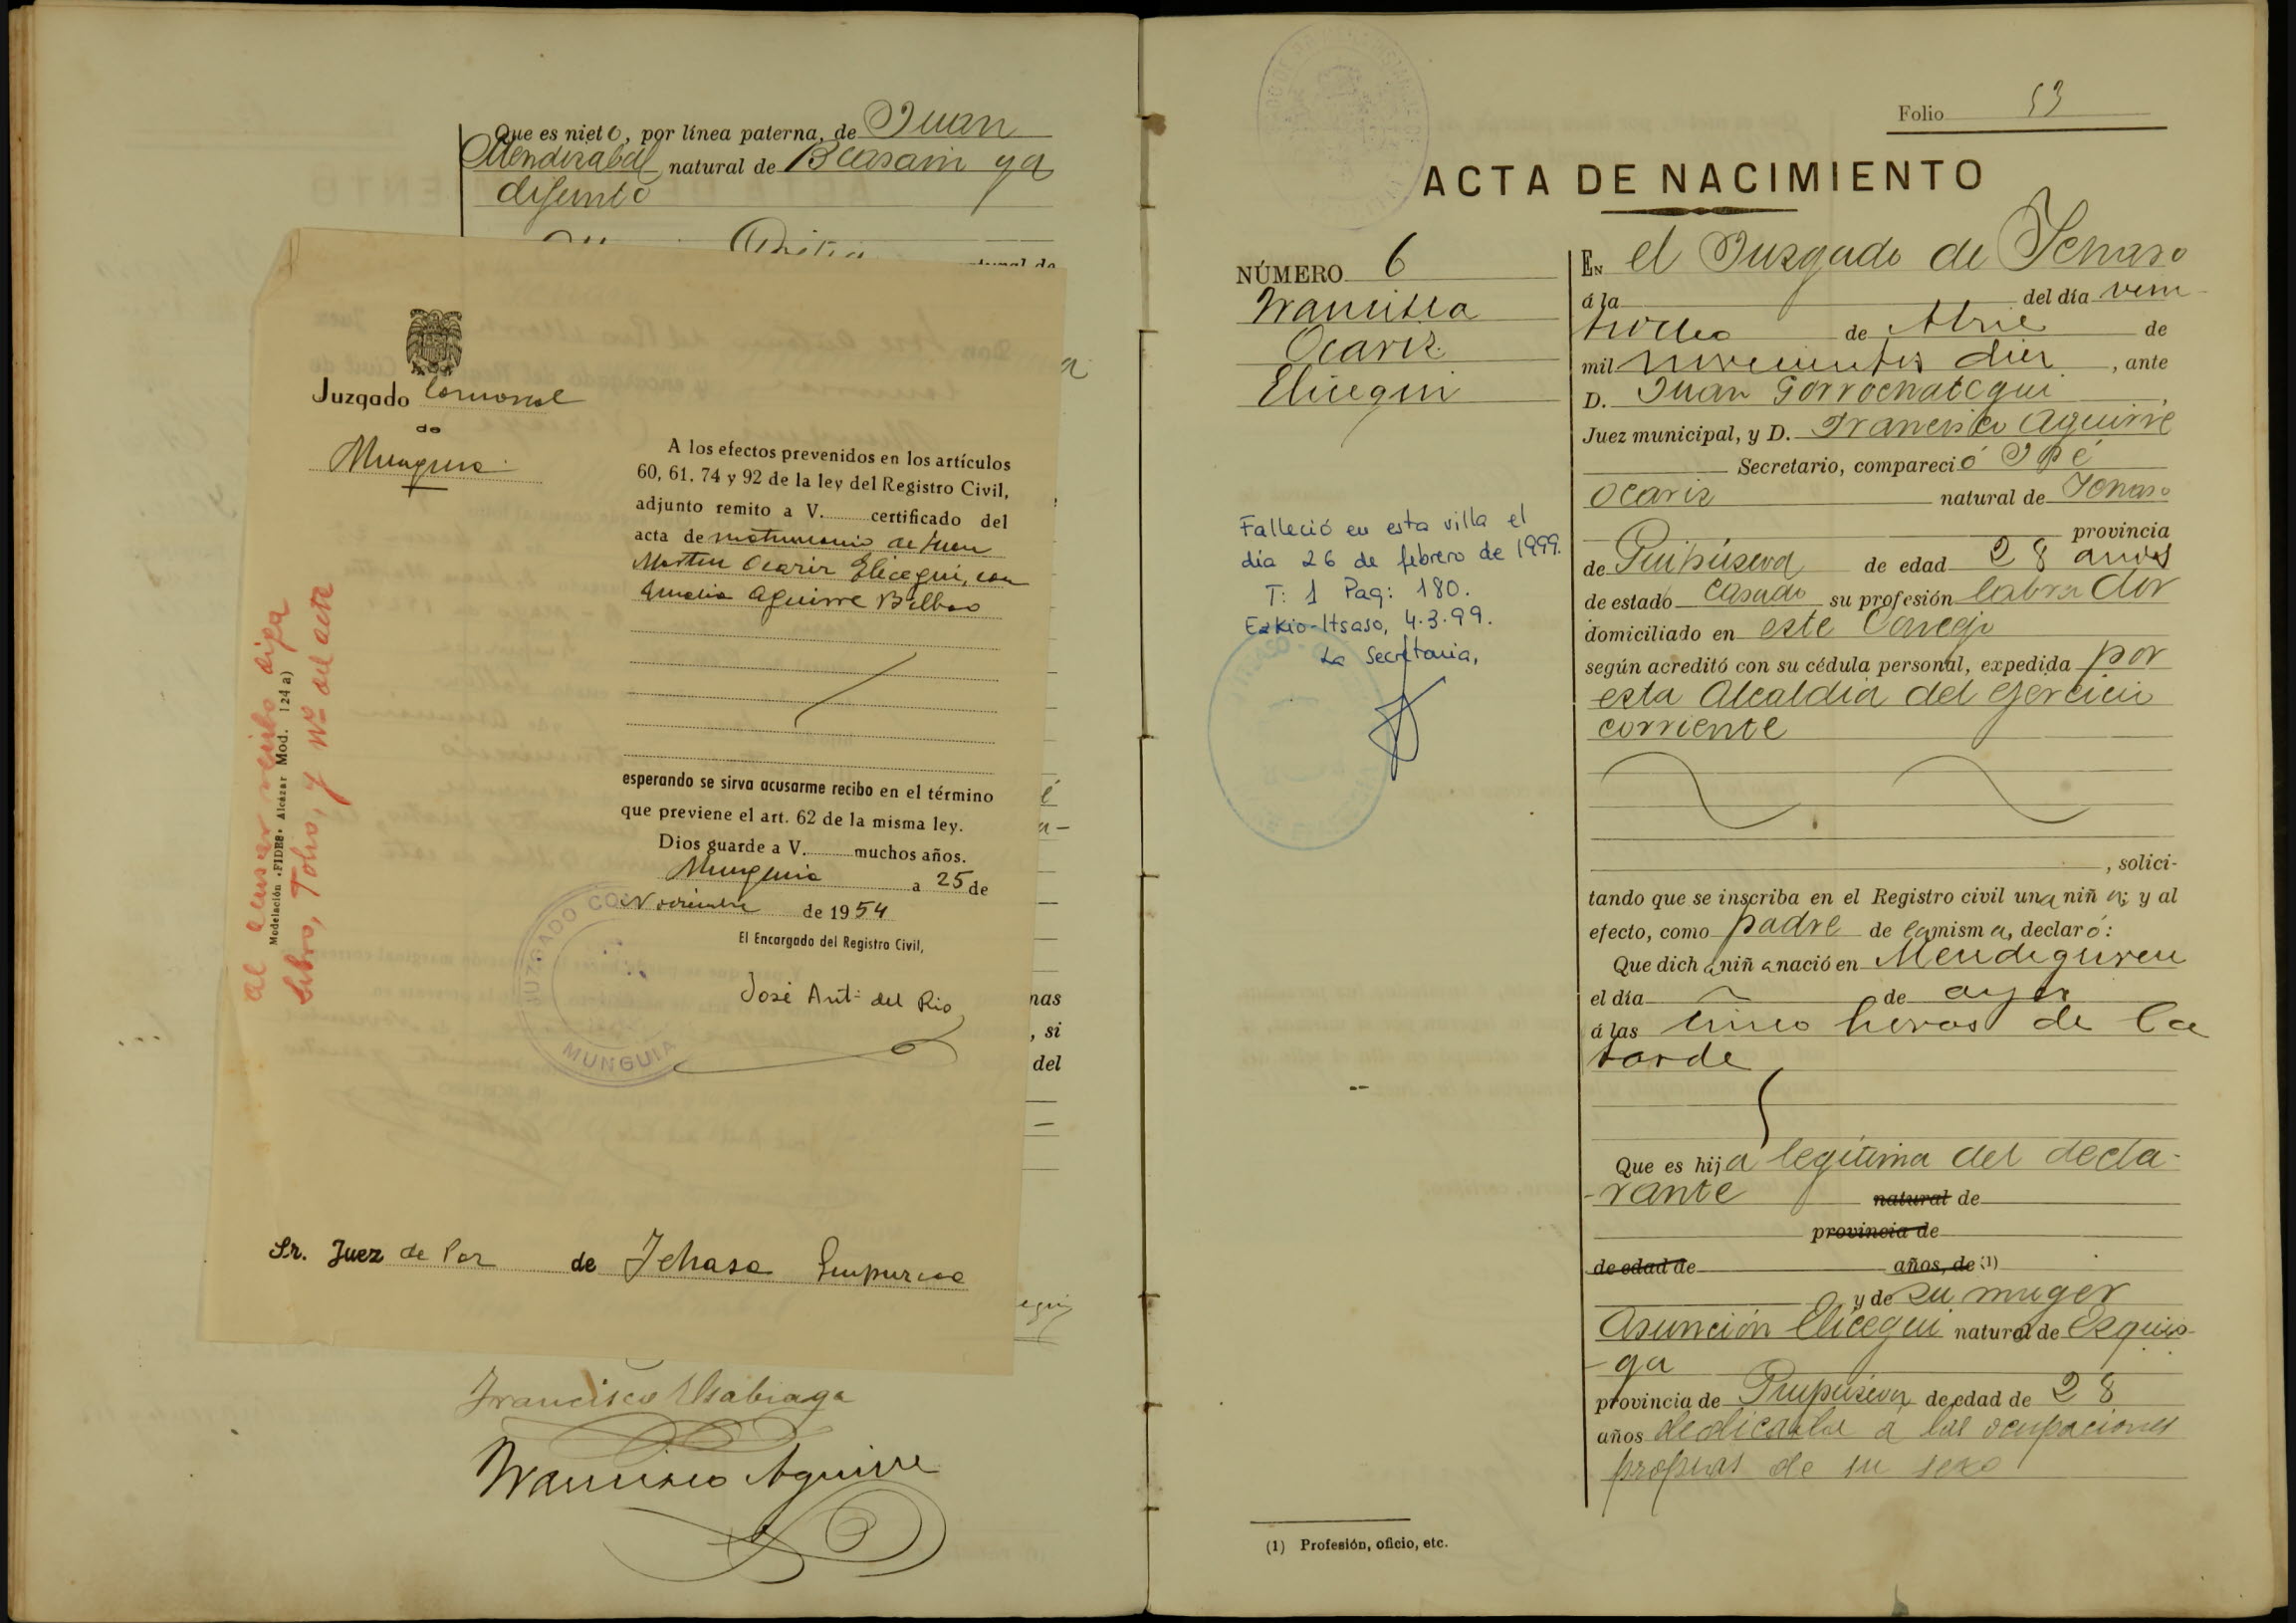 Que es nieto, por línea paterna, de Juan
Mendizabal natural de Beasain ya
difunto
Juzgado Comarcal
de
Munguia
A los efectos prevenidos en los artículos
60, 61, 74 y 92 de la ley del Registro Civil,
adjunto remito a V. certificado del
acta de matrimonio de Juan
Martin Ocariz Elicegui, con
Amalia Aguirre Bilbao
esperando se sirva acusarme recibo en el término
que previene el art. 62 de la misma ley.
Dios guarde a V. muchos años.
Munguia a 25 de
Noviembre de 1954
El Encargado del Registro Civil,
José Ant. del Rio
JUZGADO CO
MUNGUIA
Sr. Juez de Paz de Ichaso Guipuzcoa
al acusar recibo diga
Modelación «FIDES» Alcázar Mod. 124 a)
Libro, Folio, y nº del acta
a
é
a-
nas
, si
del
egui
Francisco Alsabiaga
Francisco Aguirre
Folio 53
ACTA DE NACIMIENTO
NÚMERO 6
Francisca
Ocariz
Elicegui
Falleció en esta villa el
día 26 de febrero de 1999.
T: 1 Pag: 180.
Ezkio-Itsaso, 4.3.99.
La Secretaria,
En el Juzgado de Ichaso
á la del día vein
tiocho de Abril de
mil novecientos diez, ante
D. Juan Gorrochategui,
Juez municipal, y D. Francisco Aguirre
Secretario, compareció José
Ocariz natural de Ichaso
provincia
de Guipúzcoa de edad 28 años
de estado casado su profesión labrador
domiciliado en este Concejo
según acreditó con su cédula personal, expedida por
esta Alcaldia del ejercicio
corriente
, solici-
tando que se inscriba en el Registro civil una niña; y al
efecto, como padre de la misma, declaró:
Que dicha niña nació en Mendiguren
el día de ayer
á las cinco horas de la
tarde
Que es hija legítima del decla-
-rante natural de
provincia de
de edad de años, de (1)
y de su muger
Asunción Elicegui natural de Ezquio-
-ga
provincia de Guipúzcoa de edad de 28
años dedicada á las ocupaciones
propias de su sexo
(1) Profesión, oficio, etc.